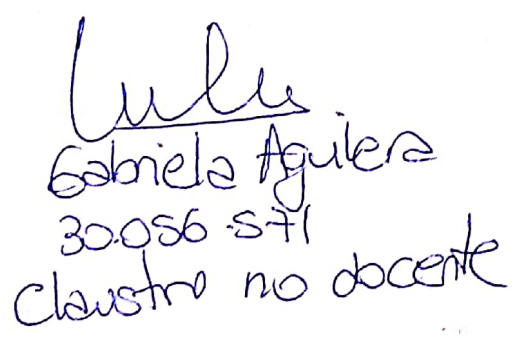 Lulu
Gabriela Aguilera
30.056.571
Claustro no docente